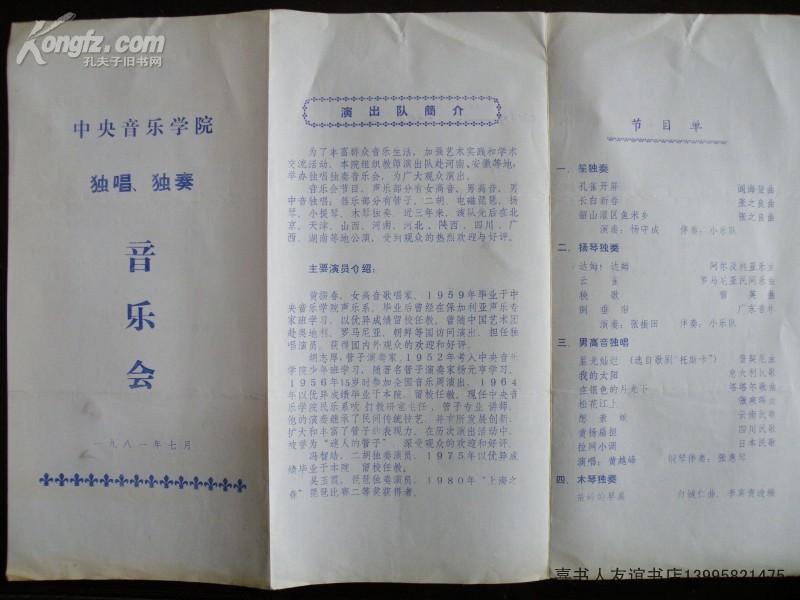 Kongfz.com
孔夫子旧书网
中央音乐学院
独唱、独奏
音
乐
会
一九八一年七月
演出队簡介
为了丰富群众音乐生活，加强艺术实践和学术
交流活动，本院组织教师演出队赴河南、安徽等地，
举办独唱独奏音乐会，为广大观众演出。
音乐会节目，声乐部分有女高音、男高音、男
中音独唱；器乐部分有管子、二胡、电磁琵琶、扬
琴、小提琴、木琴独奏。近三年来，该队先后在北
京、天津、山西、河南、河北、陕西、四川、广
西、湖南等地公演，受到观众的热烈欢迎与好评。
主要演员介绍：
黄振春、女高音歌唱家，1959年毕业于中
央音乐学院声乐系，毕业后曾经在保加利亚声乐专
家班学习，以优异成绩留校任教。曾随中国艺术团
赴奥地利、罗马尼亚、朝鲜等国访问演出，担任独
唱演员，获得国内外观众的欢迎和好评。
胡志厚，管子演奏家，1952年考入中央音乐
学院少年班学习，随著名管子演奏家杨元亨学习，
1956年15岁时参加全国音乐周演出，1964
年以优异成绩毕业于本院，留校任教。现任中央音
乐学院民乐系吹打教研室主任，管子专业讲师。
他的演奏继承了民间传统技艺，并有所发展创新，
扩大和丰富了管子的表现力，在历次演出活动中，
被誉为“迷人的管子”，深受观众的欢迎和好评。
冯智皓，二胡独奏演员，1975年以优异成
绩毕业于本院，留校任教。
吴玉霞，琵琶独奏演员，1980年“上海之
春”琵琶比赛二等奖获得者。
节目单
一、笙独奏
孔雀开屏 阎海登曲
长白新春 张之良曲
韶山灌区鱼米乡 张之良曲
演奏：杨守成 伴奏：小乐队
二、扬琴独奏
达姆！达姆 阿尔及利亚乐曲
云雀 罗马尼亚民间乐曲
秧歌 曲
倒垂帘 广东音乐
演奏：张振田 伴奏：小乐队
三、男高音独唱
星光灿烂（选自歌剧“托斯卡”） 普契尼曲
我的太阳 意大利民歌
在银色的月光下 塔塔尔歌曲
松花江上 张寒晖曲
云南民歌
黄杨扁担 四川民歌
拉网小调 日本民歌
演唱：黄越峰 钢琴伴奏：张惠琴
四、木琴独奏
苗岭的早晨 白诚仁曲、李真贵改编
嘉书人友谊书店13995821475